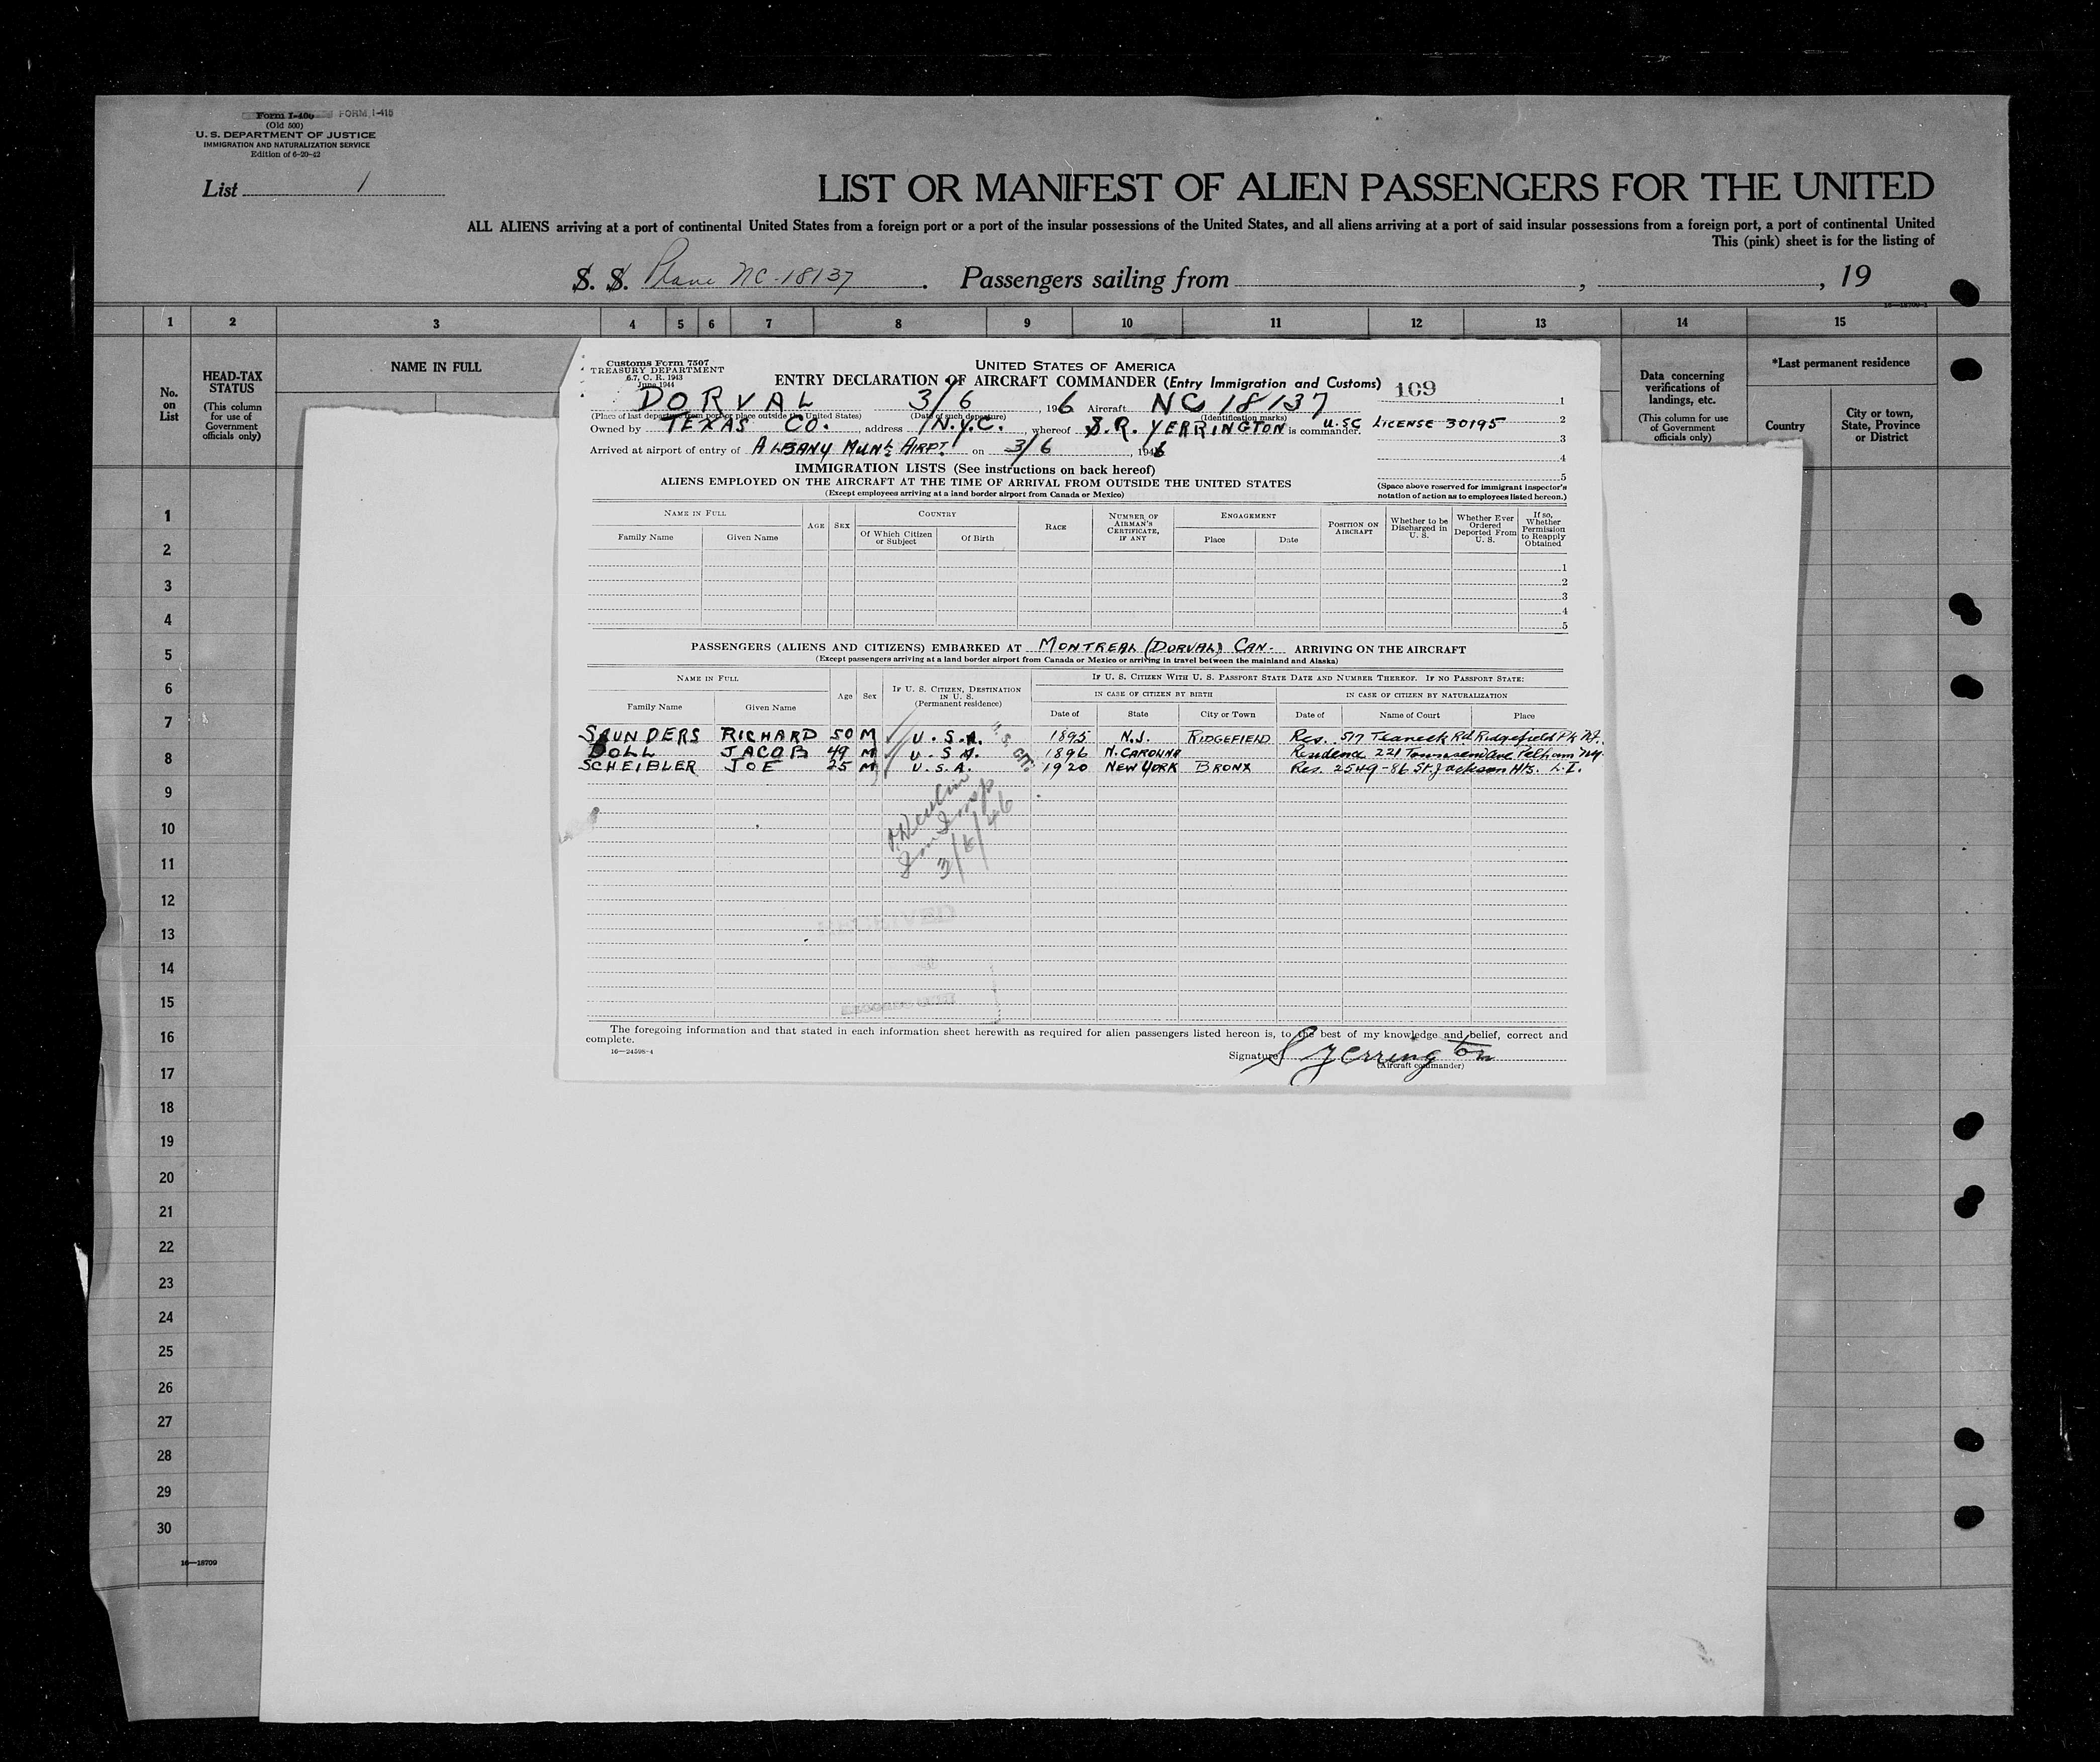 Form I-400 FORM I-415
(Old 500)
U. S. DEPARTMENT OF JUSTICE
IMMIGRATION AND NATURALIZATION SERVICE
Edition of 6-20-42
List 1
LIST OR MANIFEST OF ALIEN PASSENGERS FOR THE UNITED
ALL ALIENS arriving at a port of continental United States from a foreign port or a port of the insular possessions of the United States, and all aliens arriving at a port of said insular possessions from a foreign port, a port of continental United
This (pink) sheet is for the listing of
S. S. Plane NC-18137. Passengers sailing from , , 19
16—18709-1
1 2 3 4 5 6 7 8 9 10 11 12 13 14 15
No. on List
HEAD-TAX STATUS
(This column for use of Government officials only)
NAME IN FULL
Data concerning verifications of landings, etc.
(This column for use of Government officials only)
*Last permanent residence
Country
City or town, State, Province or District
Customs Form 7507
TREASURY DEPARTMENT
6.7, C. R. 1943
June 1944
UNITED STATES OF AMERICA
ENTRY DECLARATION OF AIRCRAFT COMMANDER (Entry Immigration and Customs) 109
DORVAL 3/6, 196 Aircraft NC 18137 1
(Place of last departure from port or place outside the United States) (Date of such departure) (Identification marks)
Owned by TEXAS CO., address N.Y.C., whereof S.R. YERRINGTON is commander. U.SC LICENSE 30195 2
3
Arrived at airport of entry of ALBANY MUNt. AIRPT. on 3/6, 1946
4
IMMIGRATION LISTS (See instructions on back hereof)
5
ALIENS EMPLOYED ON THE AIRCRAFT AT THE TIME OF ARRIVAL FROM OUTSIDE THE UNITED STATES
(Except employees arriving at a land border airport from Canada or Mexico)
(Space above reserved for immigrant inspector's notation of action as to employees listed hereon.)
NAME IN FULL AGE SEX COUNTRY RACE NUMBER OF AIRMAN'S CERTIFICATE, IF ANY ENGAGEMENT POSITION ON AIRCRAFT Whether to be Discharged in U. S. Whether Ever Ordered Deported From U. S. If so, Whether Permission to Reapply Obtained
Family Name Given Name Of Which Citizen or Subject Of Birth Place Date
1
2
3
4
5
PASSENGERS (ALIENS AND CITIZENS) EMBARKED AT MONTREAL (DORVAL) CAN. ARRIVING ON THE AIRCRAFT
(Except passengers arriving at a land border airport from Canada or Mexico or arriving in travel between the mainland and Alaska)
NAME IN FULL Age Sex IF U. S. CITIZEN, DESTINATION IN U. S. (Permanent residence) IF U. S. CITIZEN WITH U. S. PASSPORT STATE DATE AND NUMBER THEREOF. IF NO PASSPORT STATE:
IN CASE OF CITIZEN BY BIRTH IN CASE OF CITIZEN BY NATURALIZATION
Family Name Given Name Date of State City or Town Date of Name of Court Place
SAUNDERS RICHARD 50 M U.S.A. 1895 N.J. RIDGEFIELD Res. 517 Teaneck Rd Ridgefield Pk NJ.
DOLL JACOB 49 M U.S.A. 1896 N. CAROLINA Residence 221 Townsend Ave Pelham NY.
SCHEIBLER JOE 25 M U.S.A. 1920 NEW YORK BRONX Res. 2549-86 St. Jackson Hts. L.I.
U.S. CIT.
3/6/46
RECEIVED
The foregoing information and that stated in each information sheet herewith as required for alien passengers listed hereon is, to the best of my knowledge and belief, correct and
complete.
16—24598-4
Signature S Yerrington
(Aircraft commander)
1
2
3
4
5
6
7
8
9
10
11
12
13
14
15
16
17
18
19
20
21
22
23
24
25
26
27
28
29
30
16—18709